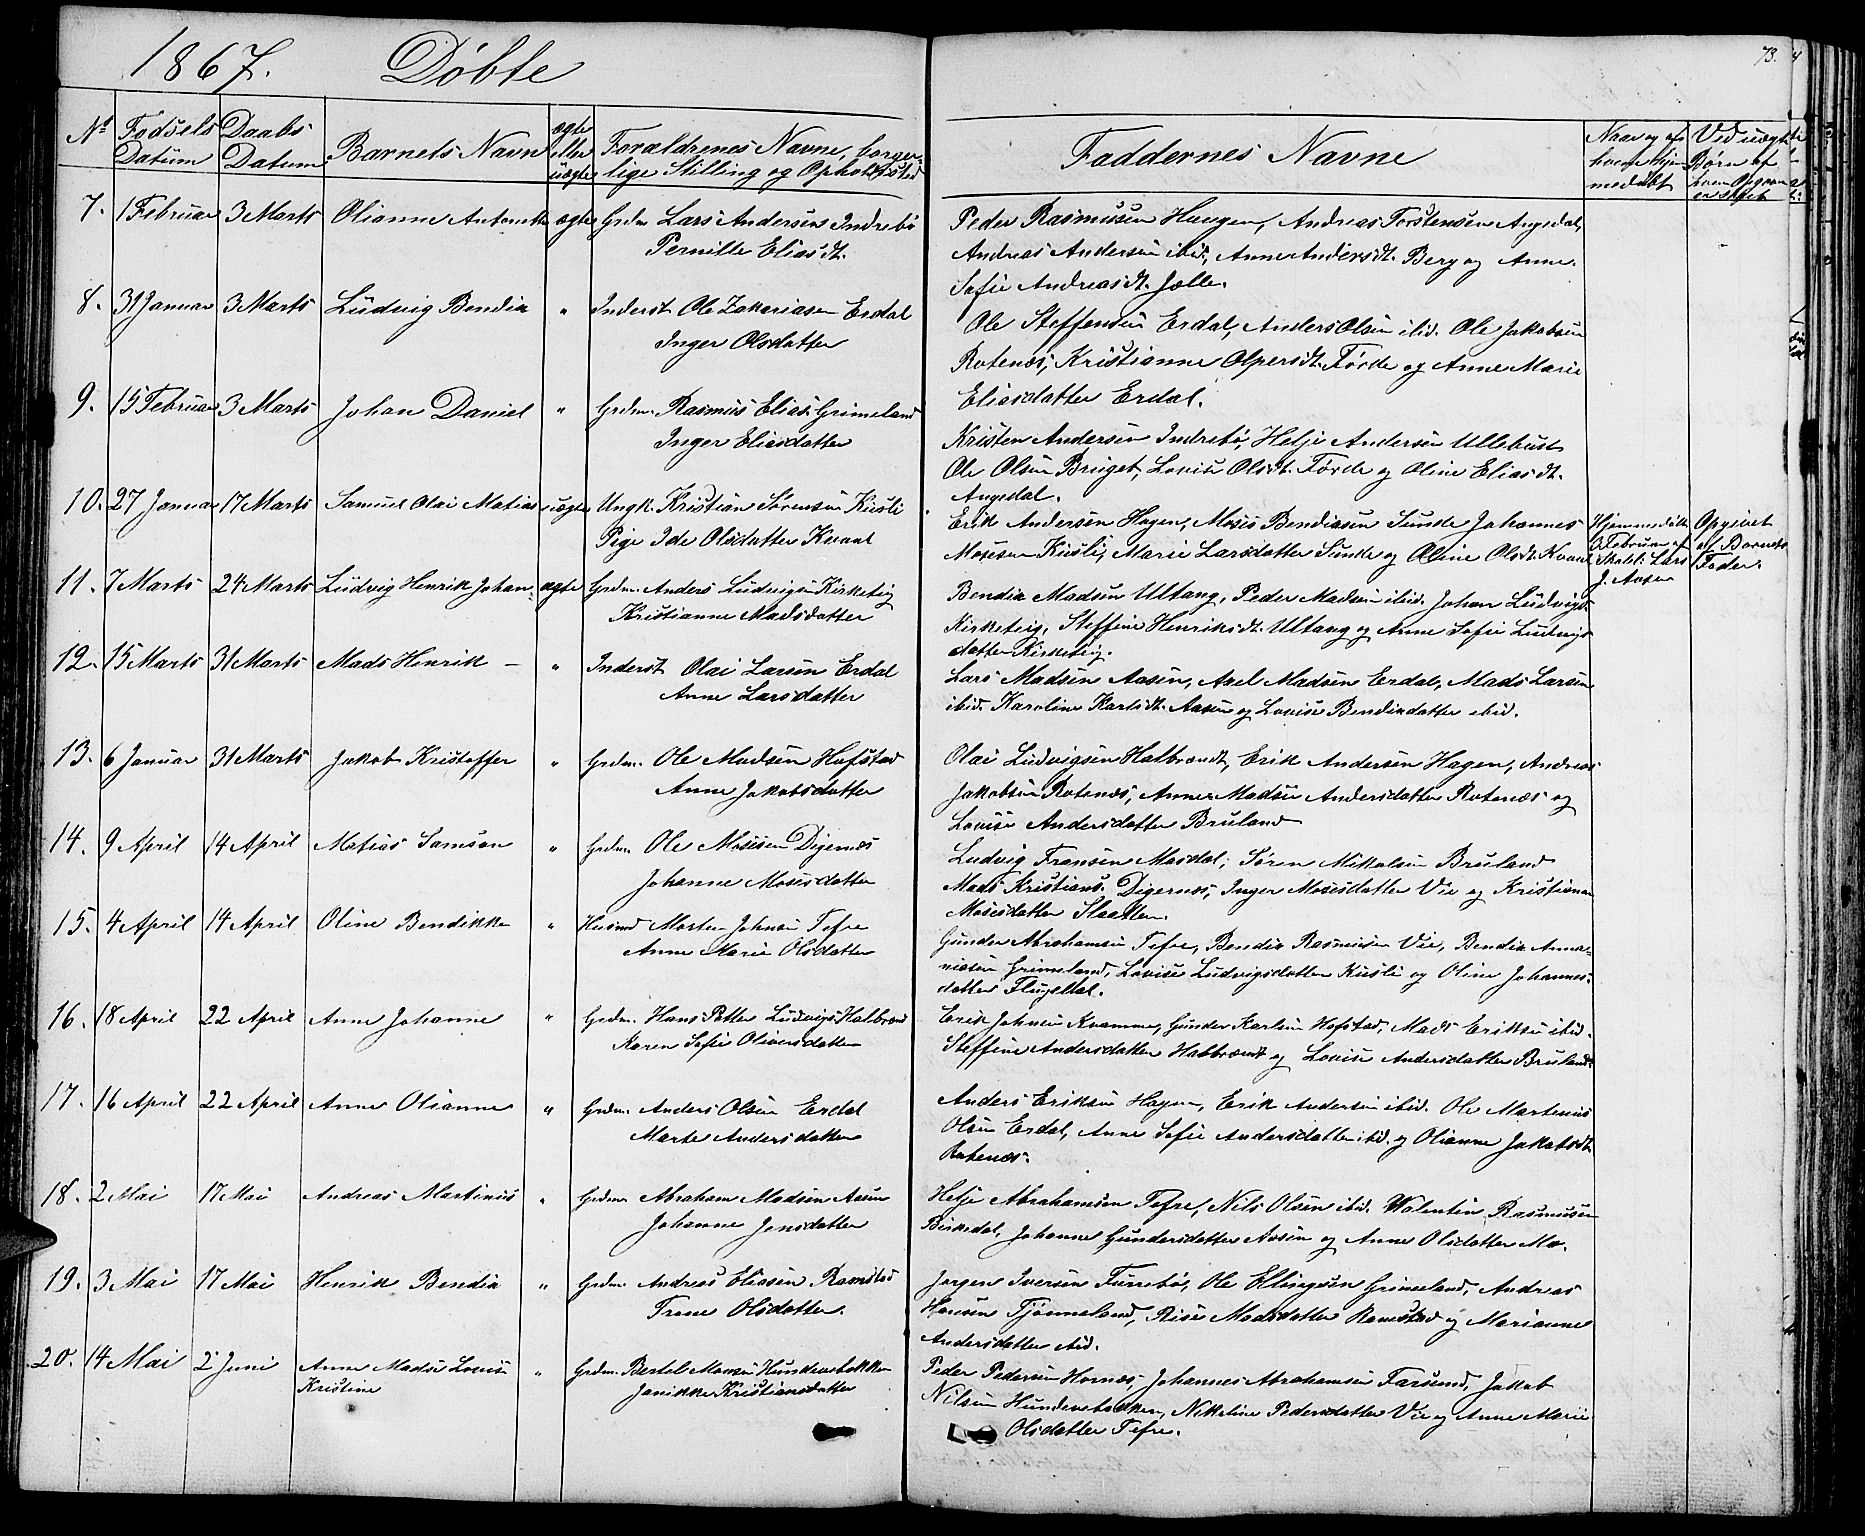 1867. Døbte
73.
No Fødsels Datum Daabs Datum Barnets Navn ægte eller uægte Forældrenes Navne, borgerlige Stilling og Opholdssted
Faddernes Navne
7. 1 Februar 3 Marts Olianne Antonette ægte Grdm. Lars Andersen Indrebø
Pernille Eliasdt.
Peder Rasmussen Haugen, Andreas Torstensen Angedal,
Andreas Andersen ibid, Anne Andersdt. Berg og Anne
Sofie Andreasdt. Jølle.
8. 31 Januar 3 Marts Ludvig Bendix " Inderst Ole Zakariasen Erdal
Inger Olsdatter
Ole Steffensen Erdal, Anders Olsen ibid. Ole Jakobsen
Rotenæs, Kristianne Olpersdt. Førde og Anne Marie
Eliasdatter Erdal.
9. 15 Februar 3 Marts Johan Daniel " Grdm. Rasmus Elias. Grimeland
Inger Eliasdatter
Kristen Andersen Indrebø, Helje Andersen Ullebust
Ole Olsen Bruget, Lovise Olsdt. Førde og Oline Eliasdt.
Angedal.
10. 27 Januar 17 Marts Samuel Olai Matias uægte Ungk. Kristian Sørensen Kusli
Pige Ide Olsdatter Kvaal
Erik Andersen Hagen, Moses Bendixsen Sunde Johannes
Mosesen Kusli, Marie Larsdatter Sunde og Oline Olsdt. Kvaal
Hjemmedøbt
3 Februar af
Skolel. Lars
J. Aasen
Opgivet
af Barnets
Fader.
11. 7 Marts 24 Marts Ludvig Henrik Johan ægte Grdm. Anders Ludvigsen Kirketeig
Kristianne Madsdatter
Bendix Madsen Ultang, Peder Madsen ibid. Johan Ludvigs.
Kirketeig, Steffine Henriksdt. Ultang og Anne Sofie Ludvigs
datter Kirketeig.
12. 15 Marts 31 Marts Mads Henrik – " Inderst Olai Larsen Erdal
Anne Larsdatter
Lars Madsen Aasen, Axel Madsen Erdal, Mads Larsen
ibid. Karoline Karlsdt. Aasen og Lovise Bendixdatter ibid.
13. 6 Januar 31 Marts Jakob Kristoffer " Grdm. Ole Madsen Hofstad
Anne Jakobsdatter
Olai Ludvigsen Halbrændt, Erik Andersen Hagen, Andreas
Jakobsen Rotenæs, Anne Madsie Andersdatter Rotenæs og
Lovise Andersdatter Bruland
14. 9 April 14 April Matias Samson " Grdm. Ole Mosesen Digernæs
Johanne Mosesdatter
Ludvig Fransen Masdal, Søren Mikalsen Bruland
Mads Kristians. Digernæs, Inger Mosesdatter Vie og Kristianne
Mosesdatter Slaatten.
15. 4 April 14 April Oline Bendikke " Husmd Morten Johnsen Tefre
Anne Marie Olsdatter
Gunder Abrahamsen Tefre, Bendix Rasmusen Vie, Bendix Anna-
niasen Grimeland, Lovise Ludvigsdatter Kusli og Oline Johannes-
datter Flugedal.
16. 18 April 22 April Anne Johanne " Grdm. Hans Petter Ludvigs. Halbrænd
Karen Sofie Oliversdatter
Erik Johnsen Kvamme, Gunder Karlsen Hofstad, Mads Eriksen ibid.
Steffine Andersdatter Halbrændt og Lovise Andersdatter Bruland
17. 16 April 22 April Anne Olianne " Grdm. Anders Olsen Erdal
Marte Andersdatter
Anders Eriksen Hagen, Erik Andersen ibid. Ole Martenius
Olsen Erdal, Anne Sofie Andersdatter ibid. og Olianne Jakobsdt.
Rotenæs.
18. 2 Mai 17 Mai Andreas Martinus " Grdm. Abraham Madsen Aasen
Johanne Jensdatter
Helje Abrahamsen Tefre, Nils Olsen ibid. Walentin Rasmusen
Birkedal, Johanne Gundersdatter Aasen og Anne Olsdatter Mo.
19. 3 Mai 17 Mai Henrik Bendix " Grdm. Andreas Eliasen Ramstad
Trane Olsdatter.
Jørgen Iversen Furrebø, Ole Ellingsen Grimeland, Andreas
Hansen Tjønneland, Rise Madsdatter Ramstad og Marianne
Andersdatter ibid.
20. 14 Mai 2 Juni Anne Madsie Lovise
Kristine " Grdm. Bertel Monsen Hundvebakke
Janikke Kristiansdatter
Peder Pedersen Hornæs, Johannes Abrahamsen Farsund, Jakob
Nilsen Hundvebakken, Nikoline Pedersdatter Vie og Anne Marie
Olsdatter Tefre.